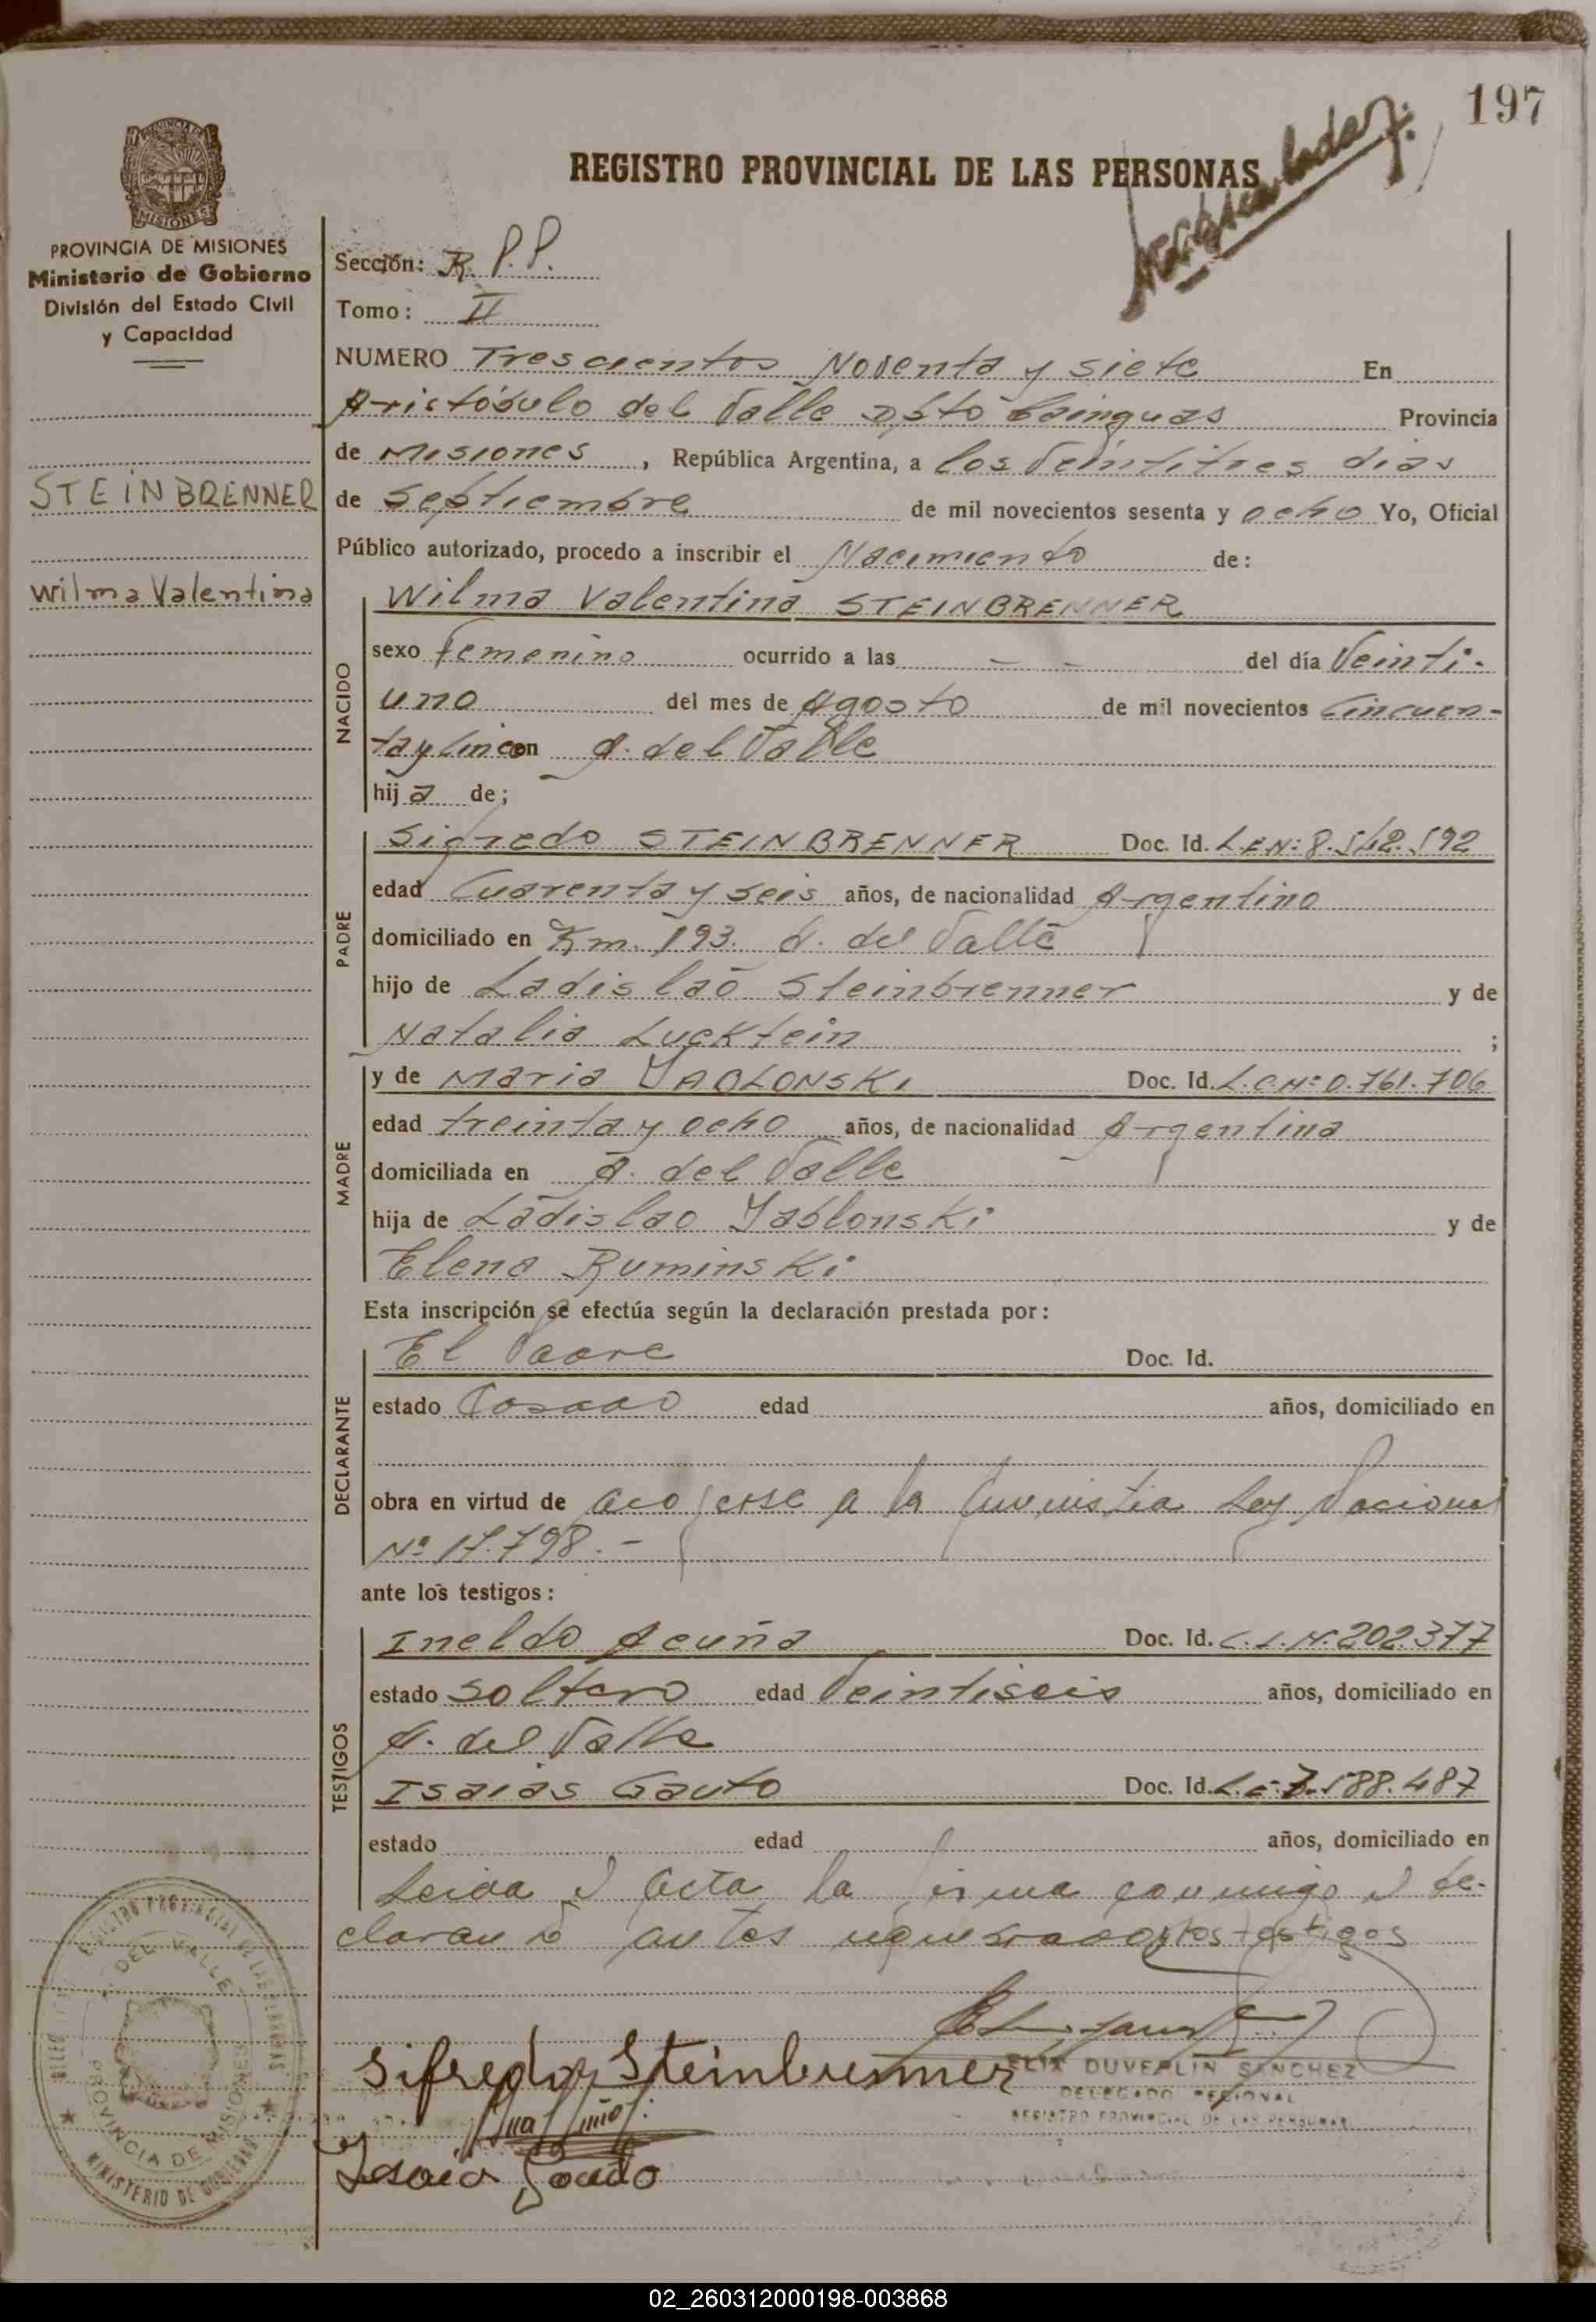 197
REGISTRO PROVINCIAL DE LAS PERSONAS
PROVINCIA DE MISIONES
Ministerio de Gobierno
División del Estado Civil
y Capacidad
STEINBRENNER
Wilma Valentina
Sección: R. P.P.
Tomo: II
NUMERO Trescientos Noventa y siete En
Aristóbulo del Valle Dpto Cainguas Provincia
de Misiones, República Argentina, a los Veintitres dias
de Septiembre de mil novecientos sesenta y ocho Yo, Oficial
Público autorizado, procedo a inscribir el Nacimiento de:
NACIDO
Wilma Valentina STEINBRENNER
sexo femenino ocurrido a las - - del día Veinti-
uno del mes de Agosto de mil novecientos Cincuen-
ta y Cinco en A. del Valle
hija de;
PADRE
Sifredo STEINBRENNER Doc. Id. L.E.N: 8.542.592
edad Cuarenta y seis años, de nacionalidad Argentino
domiciliado en Km. 193. A. del Valle
hijo de Ladislao Steinbrenner y de
Natalia Lucktein ;
MADRE
y de Maria JABLONSKI Doc. Id. L.C.Nº 0.761.706
edad treinta y ocho años, de nacionalidad Argentina
domiciliada en A. del Valle
hija de Ladislao Jablonski y de
Elena Ruminski
Esta inscripción se efectúa según la declaración prestada por:
DECLARANTE
El Padre Doc. Id.
estado Casado edad años, domiciliado en
obra en virtud de acogerse a la Amnistia Ley Nacional
Nº 17.798.-
ante los testigos:
TESTIGOS
Ineldo Acuña Doc. Id. C.I.N. 202.377
estado soltero edad Veintiseis años, domiciliado en
A. del Valle
Isaias Gauto Doc. Id. L.E. 7.588.487
estado edad años, domiciliado en
Leida el acta la firma conmigo el de-
clarante antes los testigos
Sifredo Steinbrenner
ELIX DUVERLIN SANCHEZ
DELEGADO REGIONAL
REGISTRO PROVINCIAL DE LAS PERSONAS
Isaias Gauto
REGISTRO PROVINCIAL DE LAS PERSONAS
DEL VALLE
PROVINCIA DE MISIONES
MINISTERIO DE GOBIERNO
02_260312000198-003868